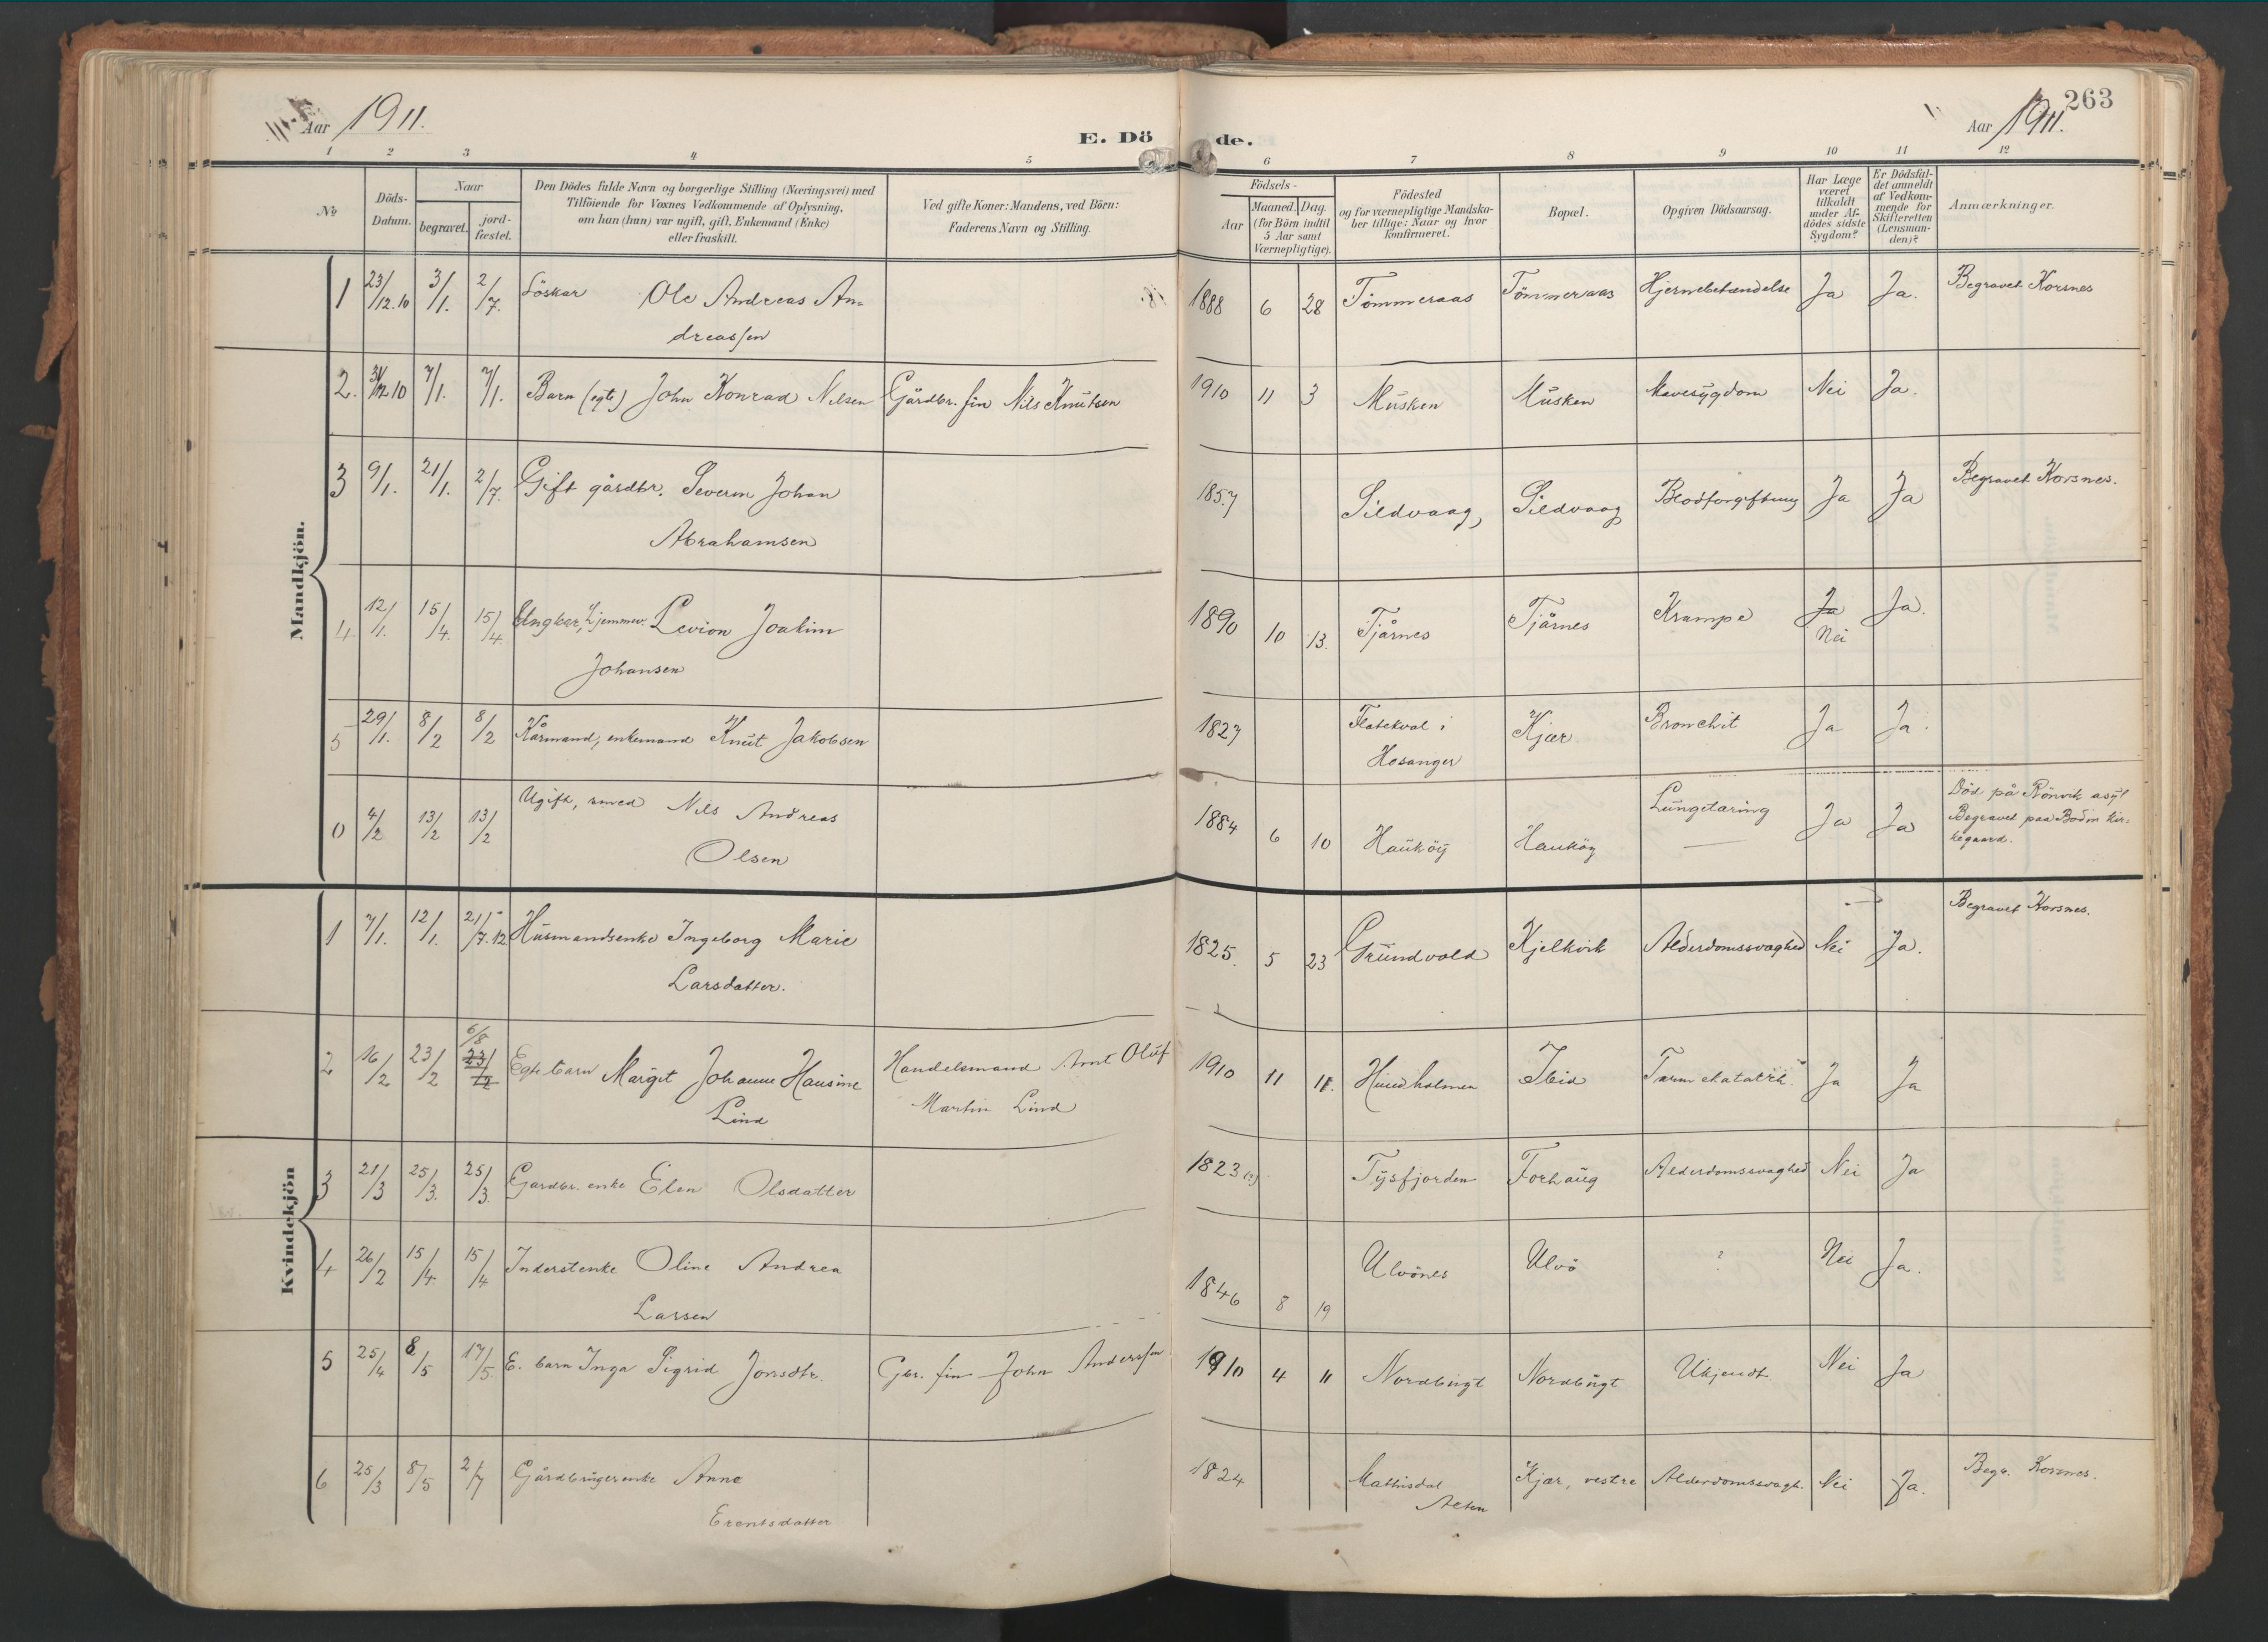 Aar 1911.
E. Döde.
263
Aar 1911.
1 2 3 4 5 6 7 8 9 10 11 12
№
Döds-Datum.
Naar
begravet.
jord-fæstet.
Den Dödes fulde Navn og borgerlige Stilling (Næringsvei) med
Tilföiende for Voxnes Vedkommende af Oplysning,
om han (hun) var ugift, gift, Enkemand (Enke)
eller fraskilt.
Ved gifte Koner: Mandens, ved Börn:
Faderens Navn og Stilling.
Födsels-
Aar
Maaned. Dag.
(for Börn indtil
5 Aar samt
Værnepligtige).
Födested
og for værnepligtige Mandska-
ber tillige: Naar og hvor
konfirmeret.
Bopæl.
Opgiven Dödsaarsag.
Har Læge
været
tilkaldt
under Af-
dödes sidste
Sygdom?
Er Dödsfal-
det anmeldt
af Vedkom-
mende for
Skifteretten
(Lensman-
den)?
Anmærkninger.
Mandkjön.
1 23/12.10 3/1. 2/7. Löskar Ole Andreas An-
dreassen
1888 6 28 Tömmeraas Tömmeraas Hjernebetændelse Ja Ja. Begravet Korsnes
2. 31/12 10 7/1. 7/1. Barn (egte) John Konrad Nilsen Gårdbr. fin Nils Knutsen 1910 11 3 Musken Musken Mavesygdom Nei Ja.
3 9/1. 21/1. 2/7. Gift gårdbr. Severin Johan
Abrahamsen
1857 Sildvaag, Sildvaag Blodforgiftning Ja Ja Begravet Korsnes.
4 12/1. 15/4. 15/4. Ungkar, hjemmev. Levion Joakim
Johansen
1890 10 13. Tjårnes Tjårnes Krampe Ja Ja.
Nei
5 29/1. 8/2 8/2 Kårmand, enkemand Knut Jakobsen 1827 Flatekval i
Hosanger
Kjær Bronchit Ja Ja.
4/2 13/2 13/2 Ugift, smed Nils Andreas
Olsen
1884 6 10 Hauköy Hauköy Lungetæring Ja Ja
Död på Rönvik asyl
Begravet paa Bodin kir-
kegaard.
Kvindekjön
1 7/1. 12/1. 21/7.12 Husmandsenke Ingeborg Marie
Larsdatter.
1825. 5 23 Grundvold Kjelkvik Alderdomssvaghed Nei Ja. Begravet Korsnes.
6/8
2 16/2 23/2 23/2 Egte barn Margit Johanne Hansine
Lind
Handelsmand Arnt Oluf
Martin Lind
1910 11 11. Hundholmen Ibid Tarmchatarrh. Ja Ja
3 21/3 25/3. 25/3. Gardbr. enke Elen Olsdatter 1823 (?) Tysfjorden Forhaug Alderdomssvaghed Nei Ja
4 26/2 15/4 15/4 Inderstenke Oline Andrea
Larsen
1846 8 19 Ulvönes Ulvö ? Nei Ja.
5 25/4 8/5 17/5. E. barn Inga Sigrid Jonsdtr. Gbr. fin John Anderssen 1910 4 11 Nordbugt Nordbugt Ukjendt. Nei Ja
6 25/3 8/5 2/7 Gårdbrugerenke Anne
Erentsdatter
1824 Mathisdal
Alten
Kjær, vestre Alderdomssvagh. Nei Ja. Begr. Korsnes.